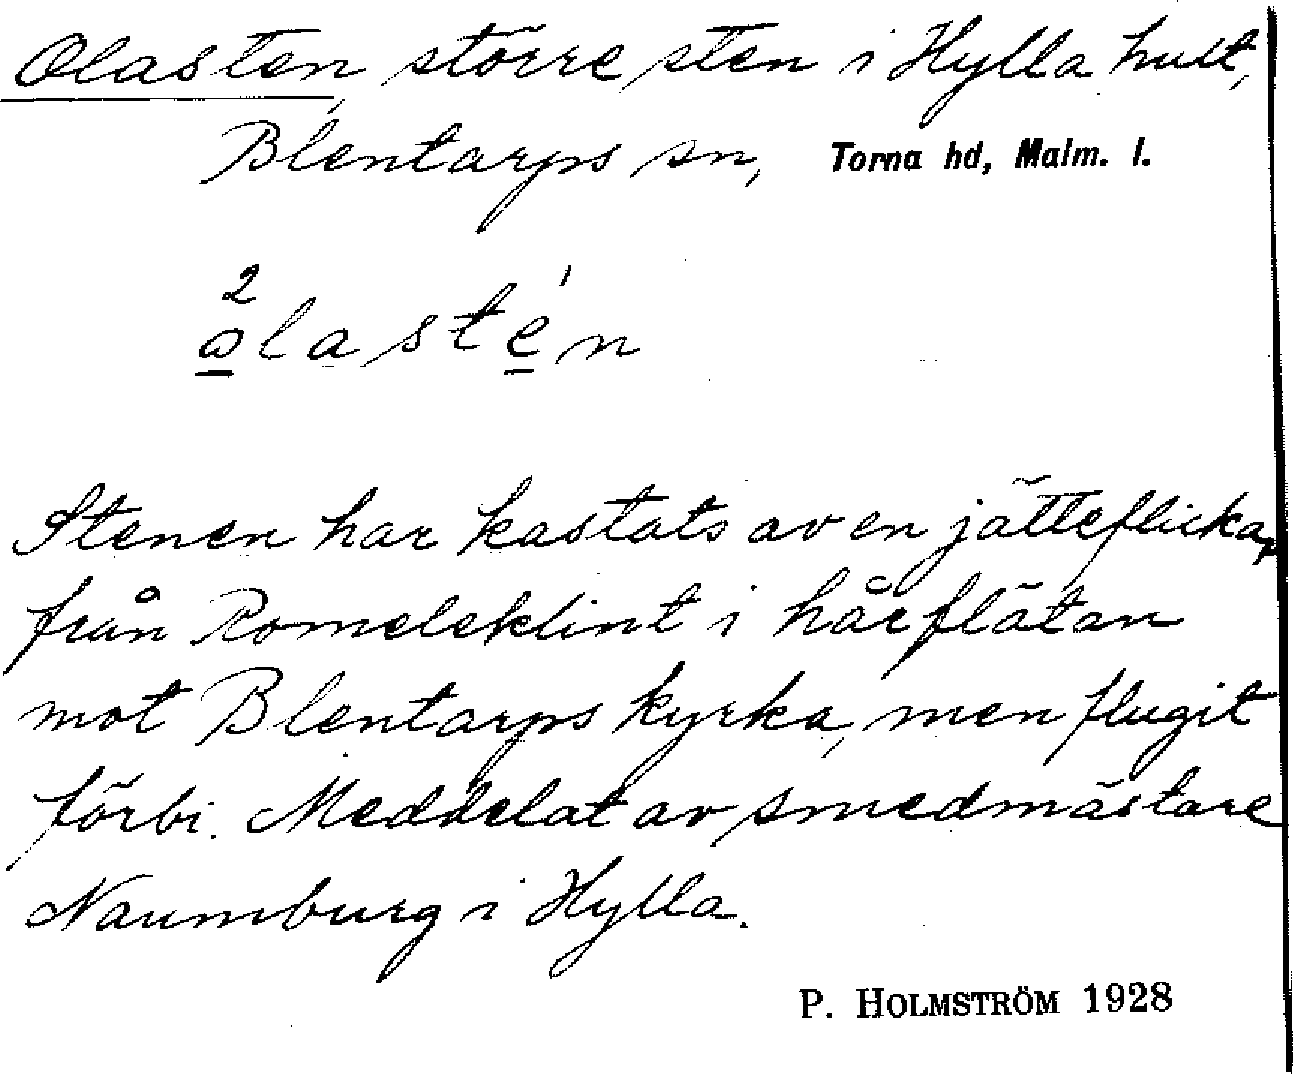 Olasten, större sten i Hylla hult,
Blentarps sn, Torna hd, Malm. l.
2 olastén
Stenen har kastats av en jätteflicka,
från Romeleklint i hårflätan
mot Blentarps kyrka, men flugit
förbi. Meddelat av smedmästare
Naumburg i Hylla.
P. HOLMSTRÖM 1928